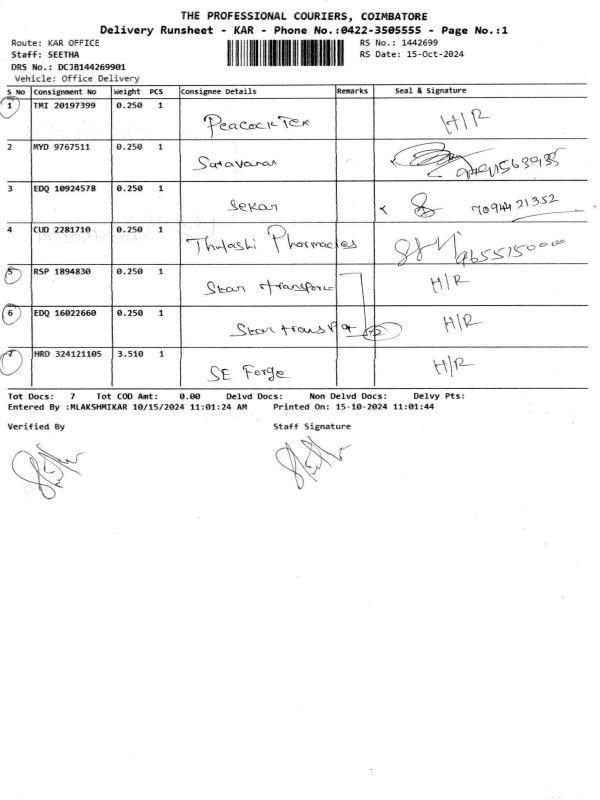 THE PROFESSIONAL COURIERS, COIMBATORE
Delivery Runsheet - KAR - Phone No.:0422-3505555 - Page No.:1
Route: KAR OFFICE RS No.: 1442699
Staff: SEETHA RS Date: 15-Oct-2024
DRS No.: DCJB144269901
Vehicle: Office Delivery
S No Consignment No Weight PCS Consignee Details Remarks Seal & Signature
1 TMI 20197399 0.250 1 Peacock Tex H/R
2 MYD 9767511 0.250 1 Saravanan
3 EDQ 10924578 0.250 1 Sekar 7094421352
4 CUD 2281710 0.250 1 Thulashi Pharmacies
5 RSP 1894830 0.250 1 Star transport H/R
6 EDQ 16022660 0.250 1 Star transport H/R
7 HRD 324121105 3.510 1 SE Forge H/R
Tot Docs: 7 Tot COD Amt: 0.00 Delvd Docs: Non Delvd Docs: Delvy Pts:
Entered By :MLAKSHMIKAR 10/15/2024 11:01:24 AM Printed On: 15-10-2024 11:01:44
Verified By Staff Signature